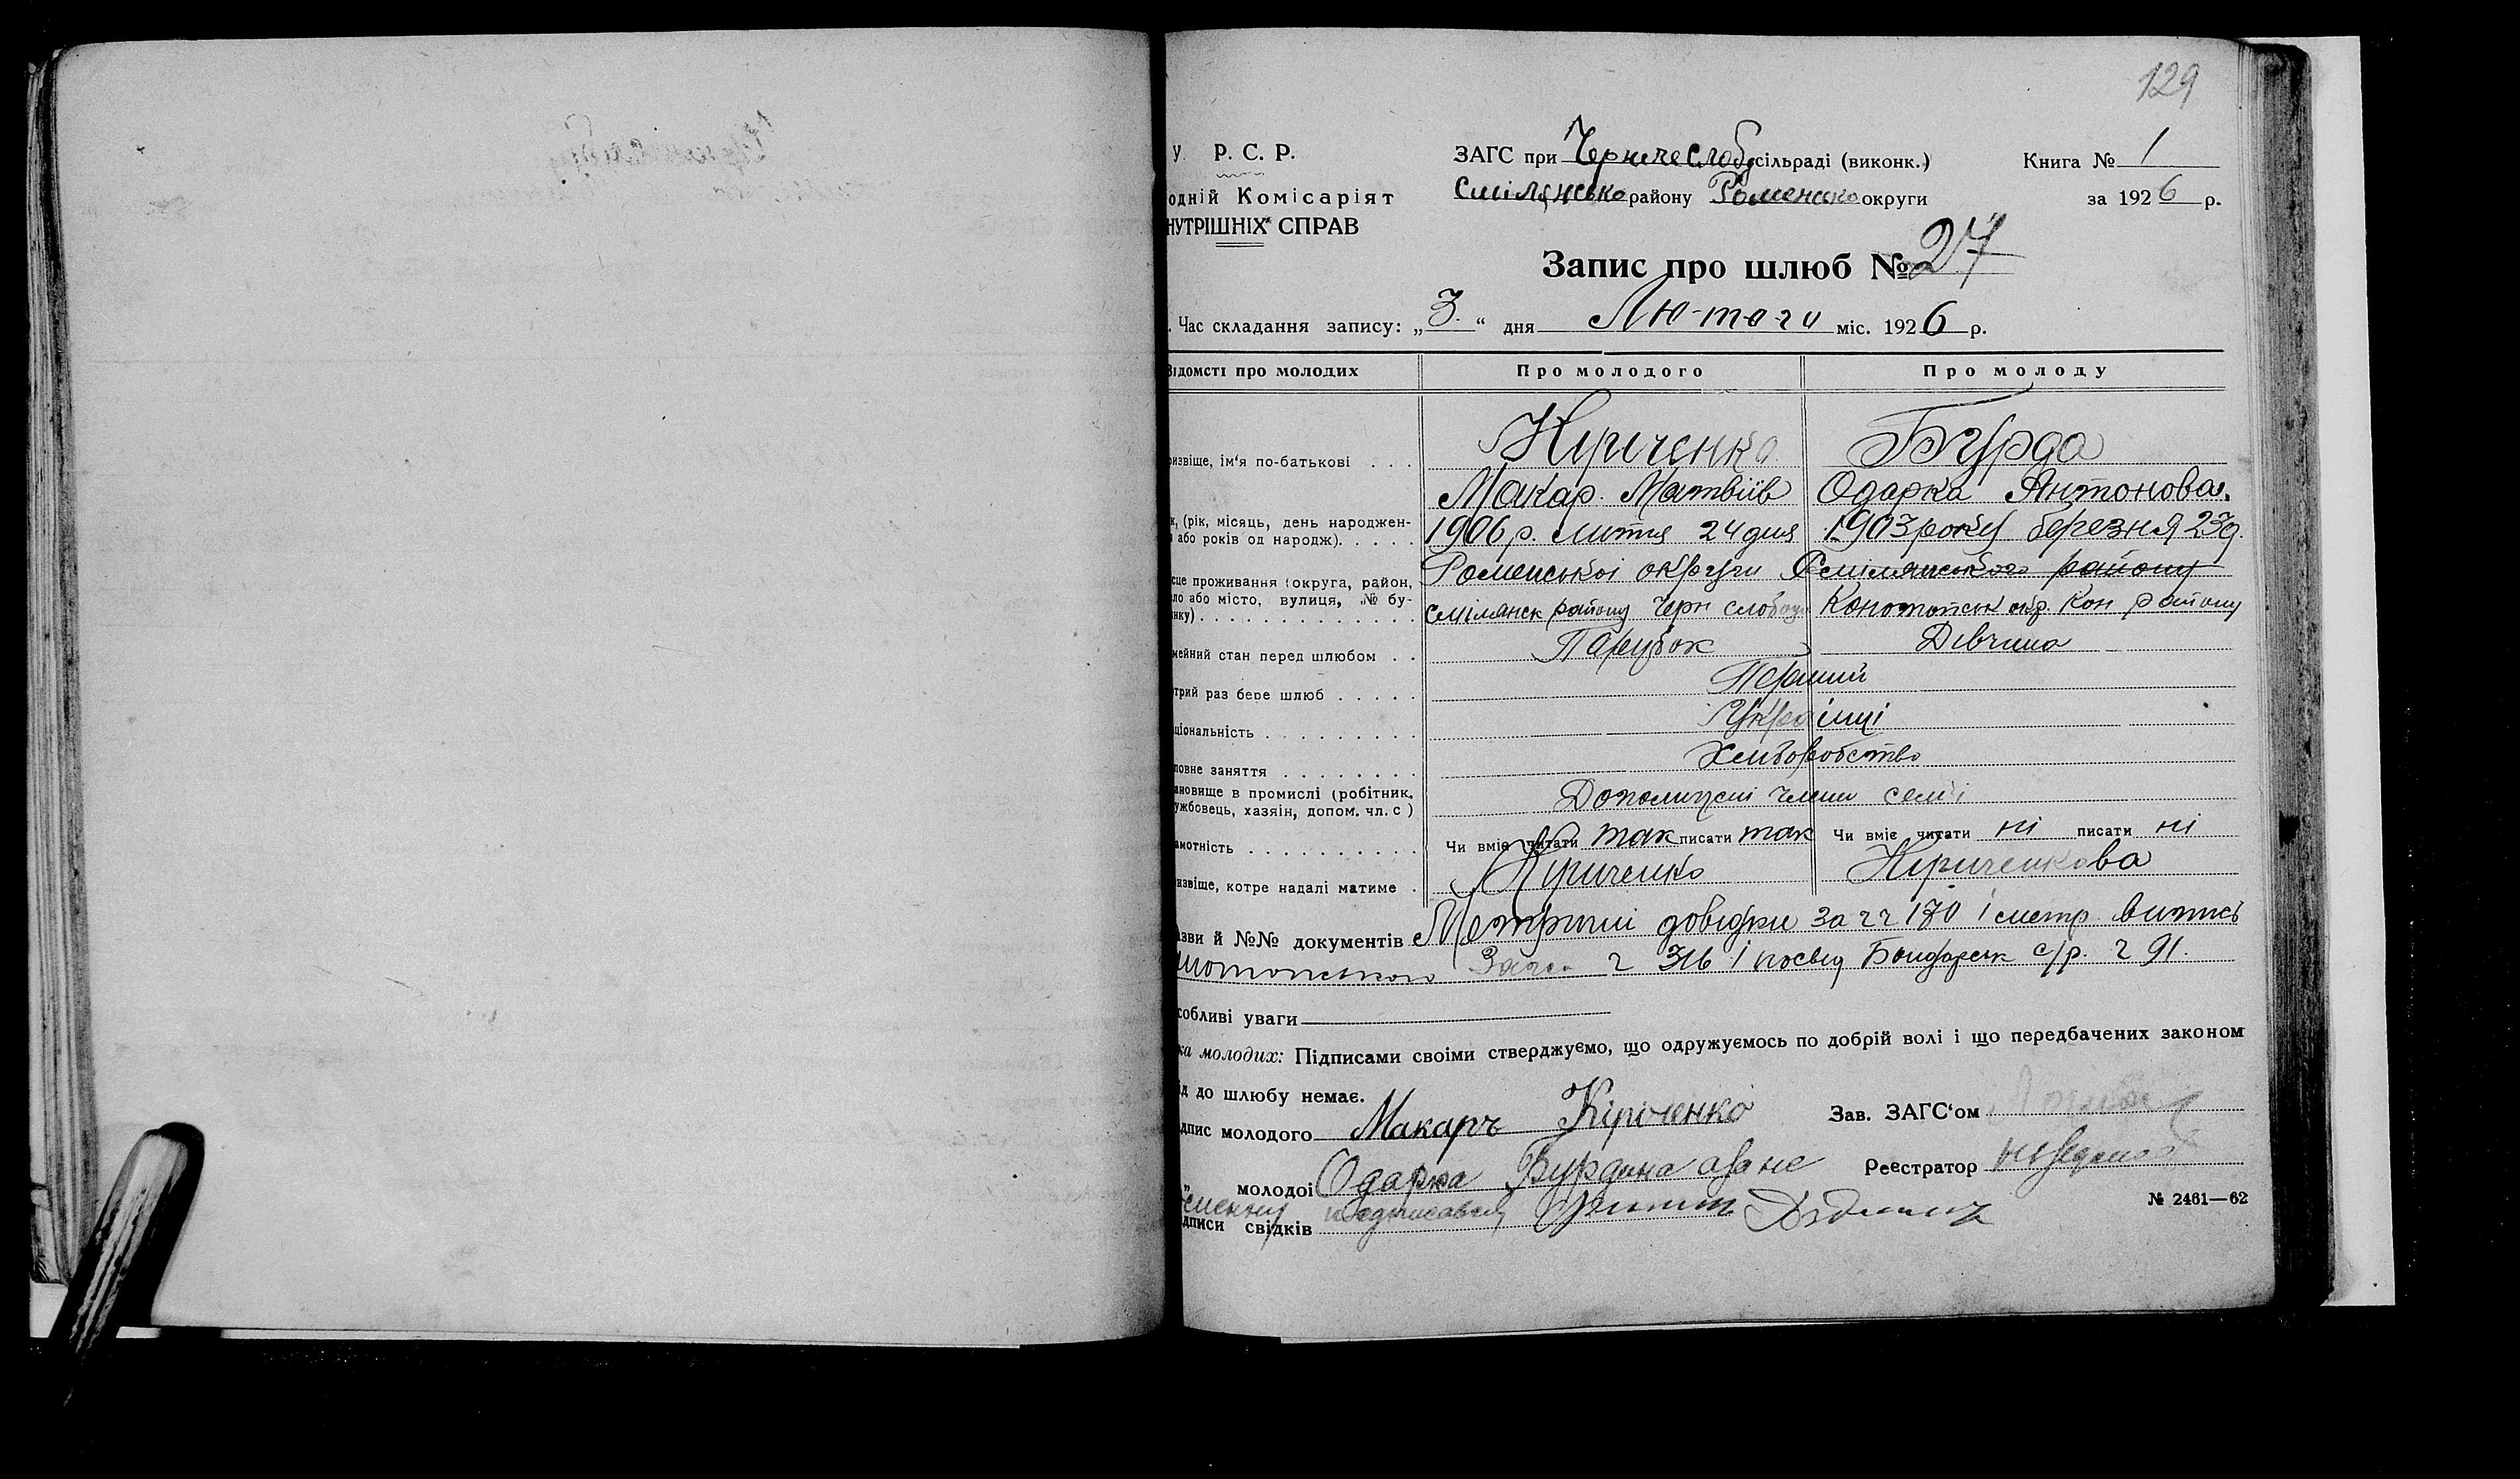 129
У. Р. С. Р.
ЗАГС при Черничеслобу сільраді (виконк.)
Книга № 1
одній Комісаріят
Смілянсько району Роменсько округи
за 1926 р.
НУТРІШНІХ СПРАВ
Запис про шлюб № 27
. Час складання запису: „3.“ дня Лютого міс. 1926 р.
Відомсті про молодих
Про молодого
Про молоду
Кіріченко
Бурда
ризвіще, ім‘я по-батькові . . .
Макар Матвіїв
Одарка Антонова.
к, (рік, місяць, день народжен-
або років од народж). . . . .
1906 р. липня 24 дня
1903 року березня 23 д.
Роменської округи Смілянського району
сце проживання (округа, район,
ло або місто, вулиця, № бу-
нку) . . . . . . . . . . . .
Смілянск району Черн слобода
Конотопськ окр. Кон району
мейний стан перед шлюбом . .
Парубок
Дівчина
трий раз бере шлюб . . . . .
Перший
ціональність . . . . . . . . .
Українці
ловне заняття . . . . . . . .
Хліборобство
ановище в промислі (робітник,
ужбовець, хазяін, допом. чл. с )
Допомічні члени семї
амотність . . . . . . . . . .
Чи вміє читати так писати так
Чи вміє читати ні писати ні
ізвіще, котре надалі матиме .
Кириченко
Кириченкова
азви й №№ документів Метричні довідки за чч 170 і метр. витпсь
нотопського Загса ч 316 і посвід Бондарськ с/р. ч 91.
собливі уваги
ка молодих: Підписами своїми стверджуємо, що одружуємось по добрій волі і що передбачених законом
ід до шлюбу немає.
дпис молодого Макаръ Кіріченко
Зав. ЗАГС‘ом
„ молодої Одарка Бурдина а за не
Реєстратор
№ 2461—62
дписи свідків